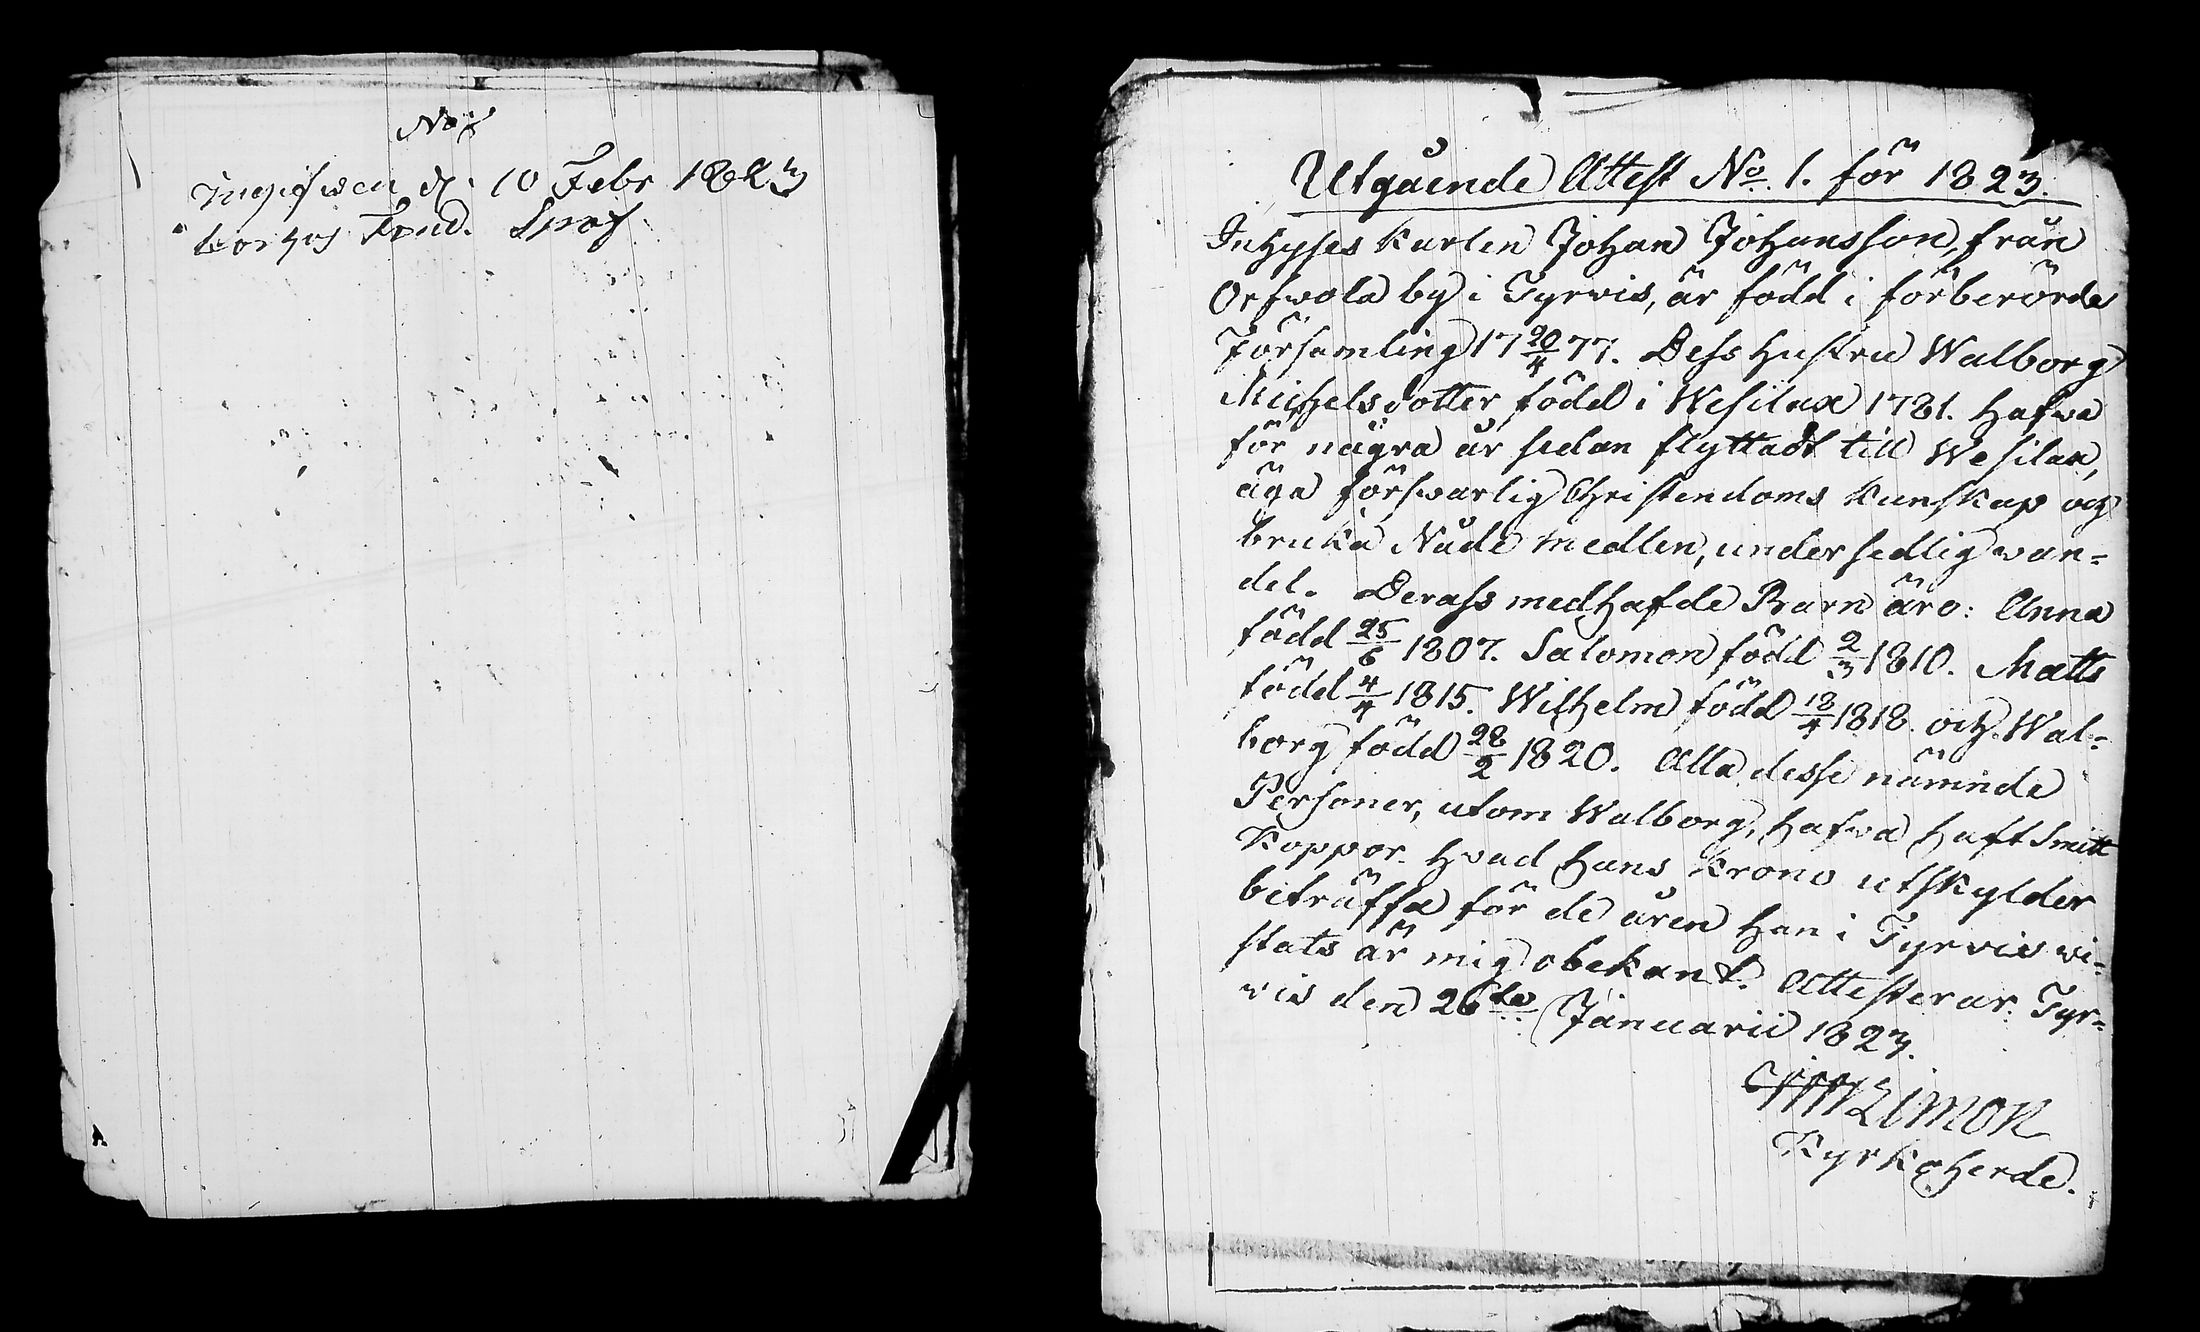 No 8
Ingifwen d. 10 Febr 1823
Utgående Attest No. 1. för 1823.
Inhyses Karlen Johan Johansson, från
Orfwola by i Tyrvis, är född i förberörde
Församling 17 20/4 77. Dess Hustru Walborg
Michelsdotter född i Wesilax 1781. Hafwa
för några år sedan flyttadt till Wesilax,
äga förswarlig Christendoms kunskap och
bruka Nåde medlen, under sedlig wan=
del. Derass medhafde Barn äro: Anna
född 25/6 1807. Salomon född 2/3 1810. Matts
född 4/4 1815. Wilhelm född 18/4 1818. och Wal=
borg född 28/2 1820. Alla desse nämnde
Personer, utom Walborg, hafwa haft Smitt
Koppor. Hvad Hans Krono utskylder
beträffa för de åren Han i Tyrvis wi=
stats är mig obekant. Attesterar. Tyr=
vis den 26te Januarii 1823.
Limon
Kyrkoherde.